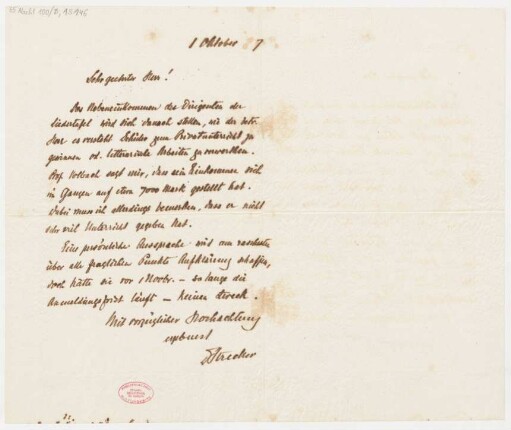 1 Oktober 7
Sehr geehrter Herr!
Das Nebeneinkommen des Dirigenten der
Liedertafel wird sich danach stellen, wie der betr.
Herr es versteht Schüler zum Privatunterricht zu
gewinnen od. litterarische Arbeiten zu verwerthen.
Prof. Volbach sagt mir, dass sein Einkommen sich
im Ganzen auf etwa 7000 Mark gestellt hat.
Dabei muss ich allerdings bemerken, dass er nicht
sehr viel Unterricht gegeben hat.
Eine persönliche Aussprache wird am raschesten
über alle fraglichen Punkte Aufklärung schaffen,
doch hätte sie vor 1 Novbr. – so lange die
Anmeldungsfrist läuft – keinen Zweck.
Mit vorzüglicher Hochachtung
ergebenst
Strecker